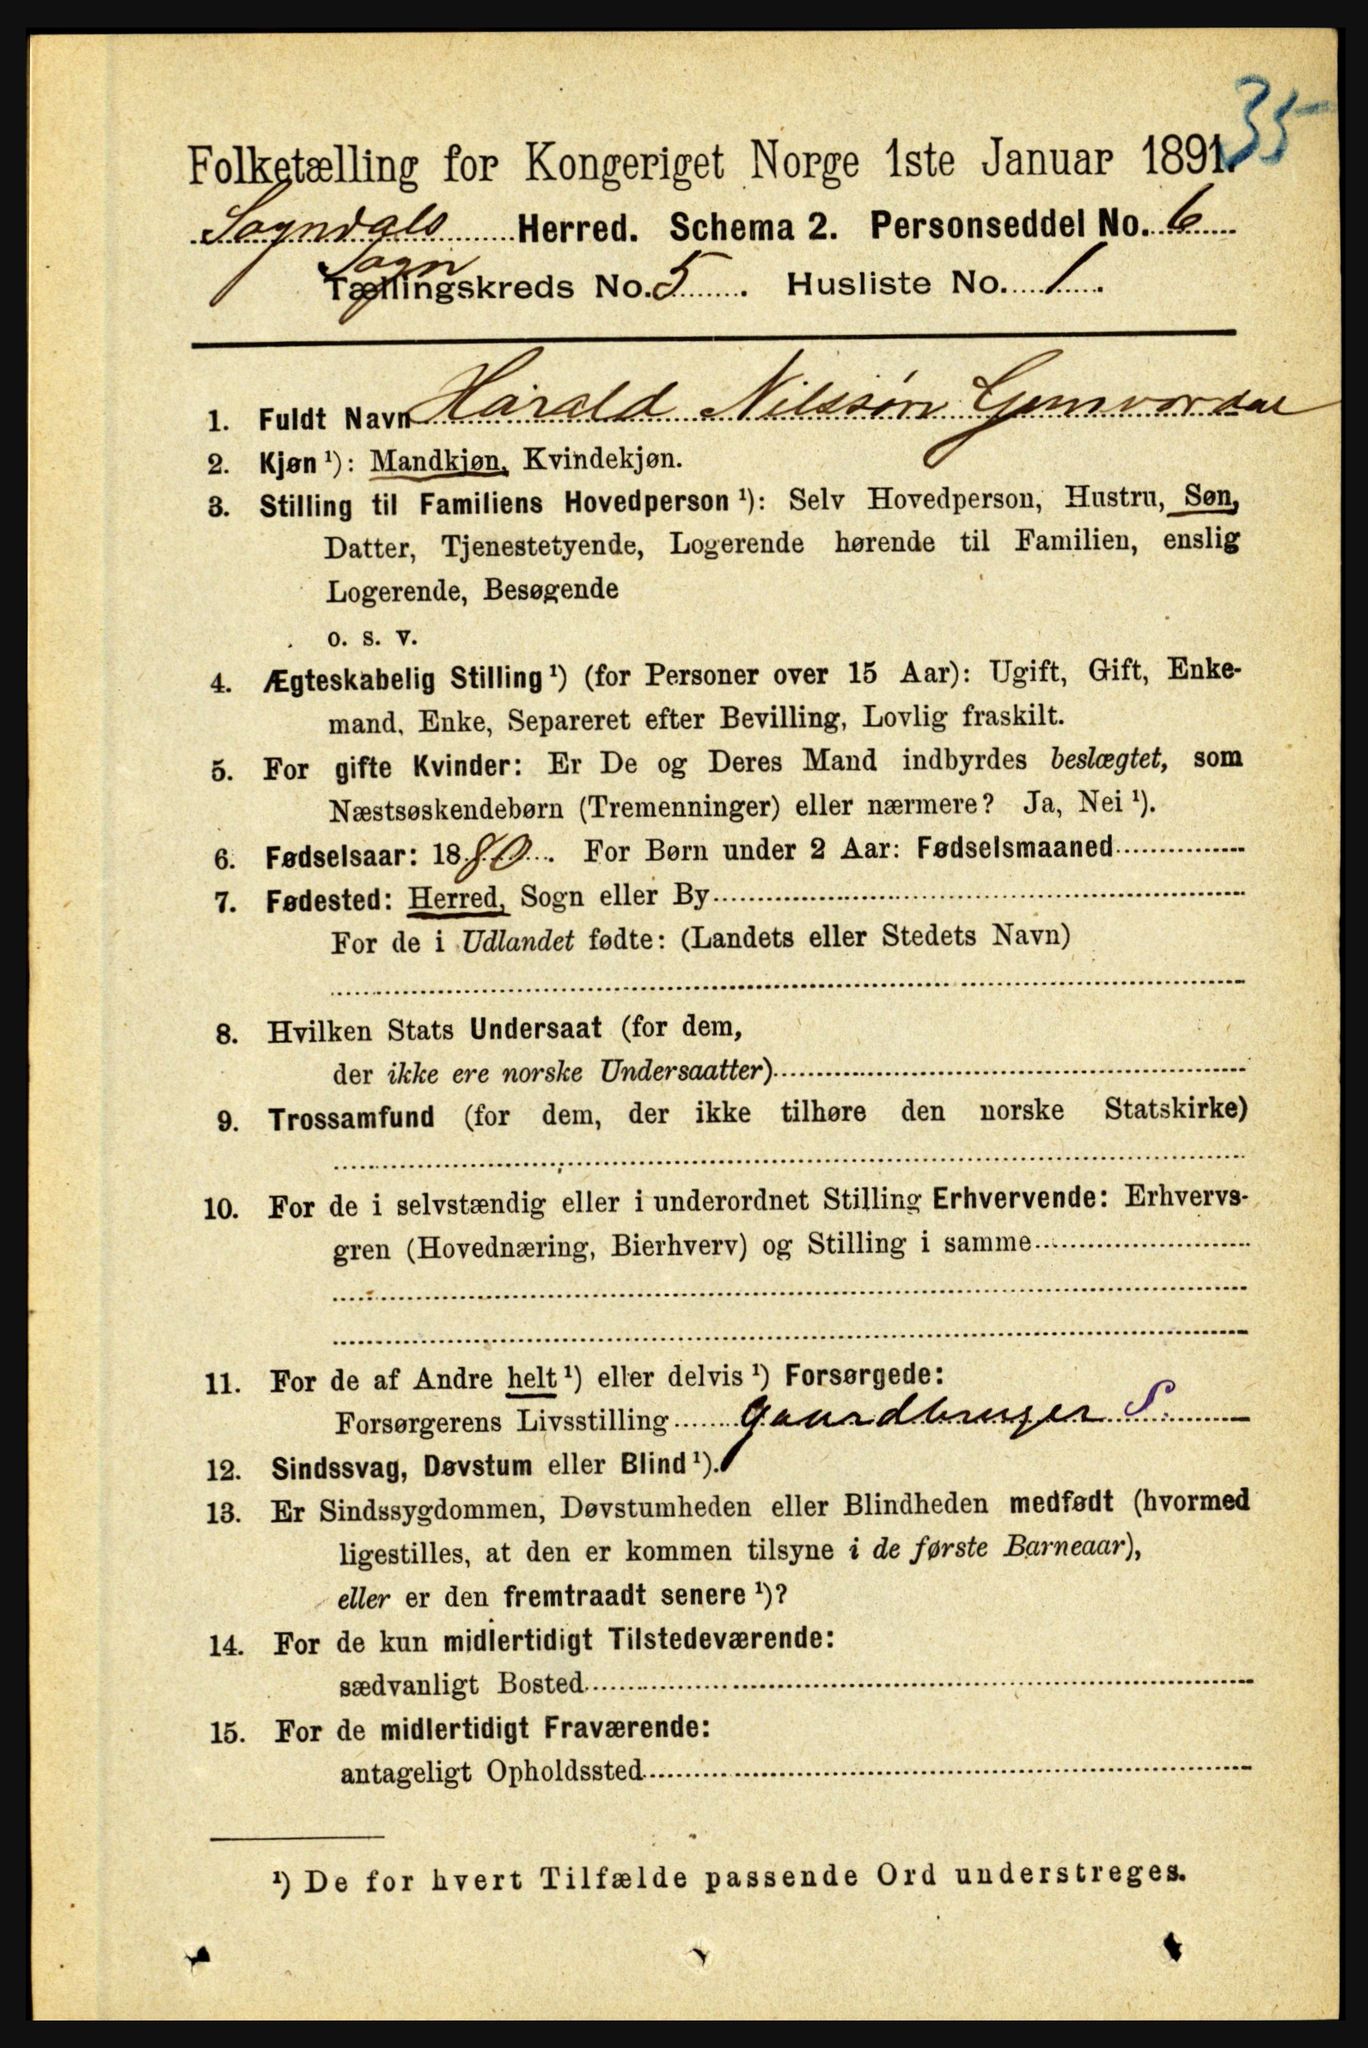 35
Folketælling for Kongeriget Norge 1ste Januar 1891.
Sogndals Herred. Schema 2. Personseddel No. 6
Sogn
Tællingskreds No. 5. Husliste No. 1.
1. Fuldt Navn Harald Nilssøn
2. Kjøn ¹): Mandkjøn, Kvindekjøn.
3. Stilling til Familiens Hovedperson ¹): Selv Hovedperson, Hustru, Søn,
Datter, Tjenestetyende, Logerende hørende til Familien, enslig
Logerende, Besøgende
o. s. v.
4. Ægteskabelig Stilling ¹) (for Personer over 15 Aar): Ugift, Gift, Enke-
mand, Enke, Separeret efter Bevilling, Lovlig fraskilt.
5. For gifte Kvinder: Er De og Deres Mand indbyrdes beslægtet, som
Næstsøskendebørn (Tremenninger) eller nærmere? Ja, Nei ¹).
6. Fødselsaar: 1880. For Børn under 2 Aar: Fødselsmaaned
7. Fødested: Herred, Sogn eller By
For de i Udlandet fødte: (Landets eller Stedets Navn)
8. Hvilken Stats Undersaat (for dem,
der ikke ere norske Undersaatter)
9. Trossamfund (for dem, der ikke tilhøre den norske Statskirke)
10. For de i selvstændig eller i underordnet Stilling Erhvervende: Erhvervs-
gren (Hovednæring, Bierhverv) og Stilling i samme
11. For de af Andre helt ¹) eller delvis ¹) Forsørgede:
Forsørgerens Livsstilling gaardbruger S.
12. Sindssvag, Døvstum eller Blind ¹).
13. Er Sindssygdommen, Døvstumheden eller Blindheden medfødt (hvormed
ligestilles, at den er kommen tilsyne i de første Barneaar),
eller er den fremtraadt senere ¹)?
14. For de kun midlertidigt Tilstedeværende:
sædvanligt Bosted
15. For de midlertidigt Fraværende:
antageligt Opholdssted
¹) De for hvert Tilfælde passende Ord understreges.